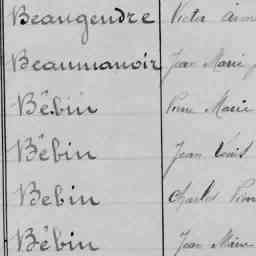 Beaugendre Victor
Beaumanoir Jean Marie
Bébin Pierre Marie
Bébin Jean Louis
Bebin Charles
Bébin Jean Marie